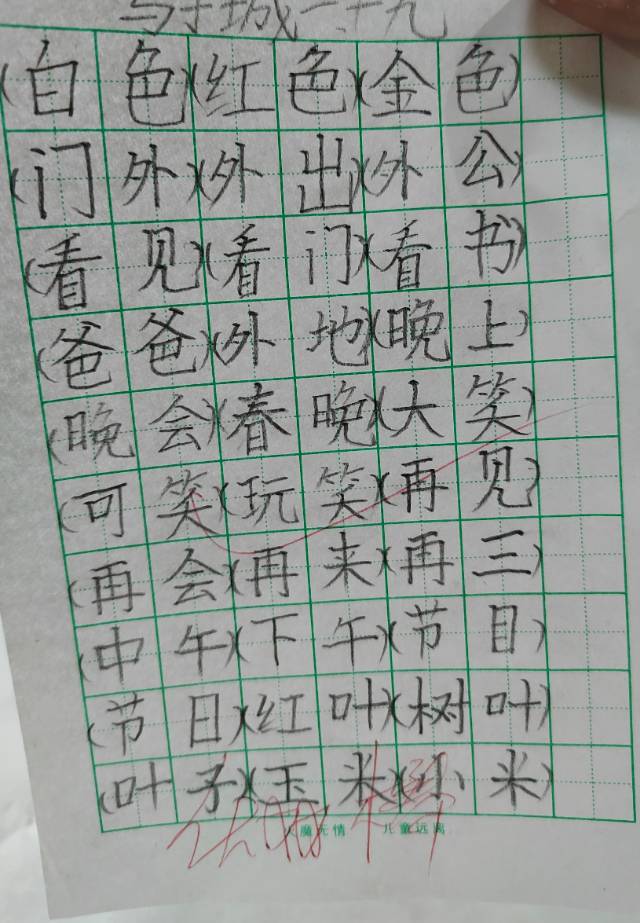 (白色)(红色)(金色)
(门外)(外出)(外公)
(看见)(看门)(看书)
(爸爸)(外地)(晚上)
(晚会)(春晚)(大笑)
(可笑)(玩笑)(再见)
(再会)(再来)(再三)
(中午)(下午)(节目)
(节日)(红叶)(树叶)
(叶子)(玉米)(小米)
魔无情 儿童远离